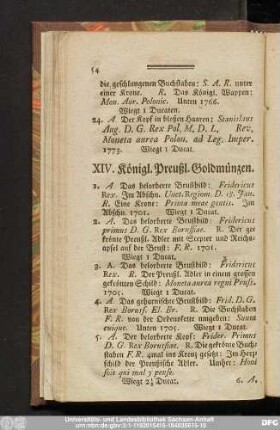 54
die geschlungenen Buchstaben: S. A. R. unter
einer Krone. R. Das Königl. Wappen:
Mon. Aur. Polonic. Unten 1766.
Wiegt 1 Ducaten.
24. A Der Kopf in bloßen Haaren: Stanislaus
Aug. D. G. Rex Pol. M. D. L, Rev.
Moneta aurea Polon. ad Leg. Imper.
1773. Wiegt 1 Ducat.
XIV. Königl. Preußl. Goldmünzen.
1. A Das belorberte Brustbild: Fridericus
Rex. Im Abschn. Unct. Region. D. 18. Jan.
R. Eine Krone: Prima meae gentis. Im
Abschn. 1701. Wiegt 1 Ducat.
2. A. Das belorberte Brustbild: Fridericus
primus D. G. Rex Borussiae. R. Der ge-
krönte Preußl. Adler mit Scepter und Reichs-
apfel auf der Brust: F. R. 1701.
Wiegt 1 Ducat.
3. A. Das belorberte Brustbild: Fridericus
Rex. R. Der Preußl. Adler in einem grossen
gekrönten Schild: Moneta aurea regni Pruss.
1705. Wiegt 1 Ducat.
4. A Das geharnischte Brustbild: Frid. D. G.
Rex Boruss. El. Br. R. Die Buchstaben
F. R. von der Ordenskette umgeben: Suum
cuique. Unten 1705. Wiegt 1 Ducat.
5. A Der belorberte Kopf: Frider. Primus
D. G. Rex Borussiae. R. Die gekrönte Buch-
staben F. R. 4mal ins Kreuz gesetzt: Im Herz-
schild der Preußl. Adler. Umher: Honi
soit qui mal y pense.
Wiegt 2¼ Ducat. 6. A.
Universitäts- und Landesbibliothek Sachsen-Anhalt